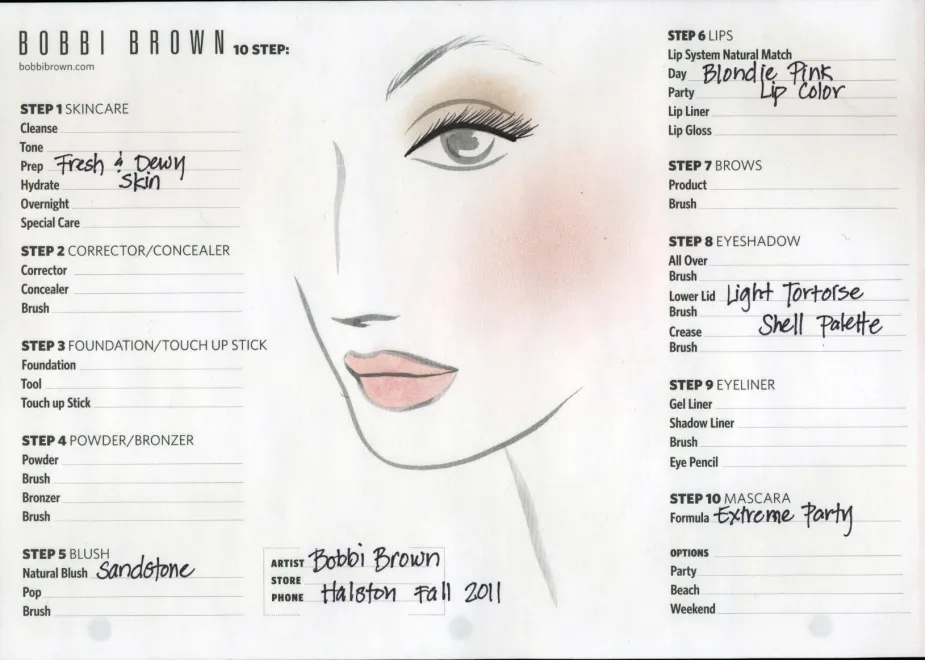 BOBBI BROWN 10 STEP:
bobbibrown.com
STEP 1 SKINCARE
Cleanse
Tone
Prep Fresh & Dewy
Hydrate Skin
Overnight
Special Care
STEP 2 CORRECTOR/CONCEALER
Corrector
Concealer
Brush
STEP 3 FOUNDATION/TOUCH UP STICK
Foundation
Tool
Touch up Stick
STEP 4 POWDER/BRONZER
Powder
Brush
Bronzer
Brush
STEP 5 BLUSH
Natural Blush Sandstone
Pop
Brush
ARTIST Bobbi Brown
STORE
PHONE Halston Fall 2011
STEP 6 LIPS
Lip System Natural Match
Day Blondie Pink
Party Lip Color
Lip Liner
Lip Gloss
STEP 7 BROWS
Product
Brush
STEP 8 EYESHADOW
All Over
Brush
Lower Lid Light Tortoise
Brush
Crease Shell Palette
Brush
STEP 9 EYELINER
Gel Liner
Shadow Liner
Brush
Eye Pencil
STEP 10 MASCARA
Formula Extreme Party
OPTIONS
Party
Beach
Weekend